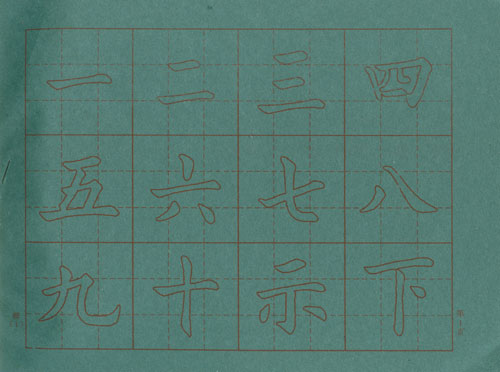 一二三四
五六七八
九十示下